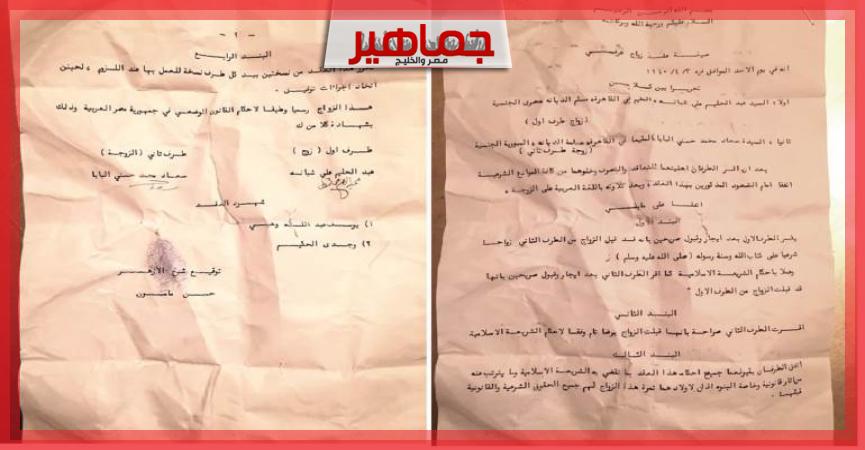 جماهير
مصر والخليج
بسم الله الرحمن الرحيم
السلام عليكم ورحمة الله وبركاته
صيغة عقد زواج عرفي
انه في يوم الاحد الموافق
تحريرا بين كلا من
اولا: السيد عبد الحليم علي شبانه المقيم في القاهرة مسلم الديانه مصرى الجنسية
(زواج طرف اول)
ثانيا: السيدة سعاد محمد حسني البابا المقيما في القاهرة مسلمة الديانه السورية الجنسية
(زوجة طرف ثاني)
بعد ان اقر الطرفان اهليتهما للتعاقد والتصرف وخلوهما من كافة الموانع الشرعية
اتفقا امام الشهود المذكورين بهذا العقد وبعد تلاوته باللغة العربية على الزوجة
على مايلي
البند الاول
يقر الطرف الاول بعد ايجاب وقبول صريحين بانه قد قبل الزواج من الطرف الثاني زواجا
شرعيا على كتاب الله وسنة رسوله (صلى الله عليه وسلم)
وعملا باحكام الشريعة الاسلامية كما اقر الطرف الثاني بعد ايجاب وقبول صريحين بانها
قد قبلت الزواج من الطرف الاول
البند الثاني
اقرت الطرف الثاني صراحة بانها قبلت الزواج برضا تام وفقا لاحكام الشريعة الاسلامية
البند الثالث
اتفق الطرفان بقبولهما جميع احكام هذا العقد بما تقضي به الشريعة الاسلامية وما يترتب عنه
من اثار قانونية وخاصة البنوه لاولاد هما ثمرة هذا الزواج لهم جميع الحقوق الشرعية والقانونية
قبلهما
- ٢ -
البند الرابع
تحرر هذا العقد من نسختين بيد كل طرف نسخة للعمل بها عند اللزوم لحين
اتخاذ اجراءات توثيق
هذا الزواج رسميا وطبقا لاحكام القانون الوضعي في جمهورية مصر العربية وذلك
بشهادة كلا من
طرف اول (زوج) طرف ثاني (الزوجة)
عبد الحليم علي شبانه سعاد محمد حسني البابا
شهود العقد
١) يوسف عبد الله وهبي
٢) وجدى الحكيم
توقيع شيخ الازهر
حسن مامون